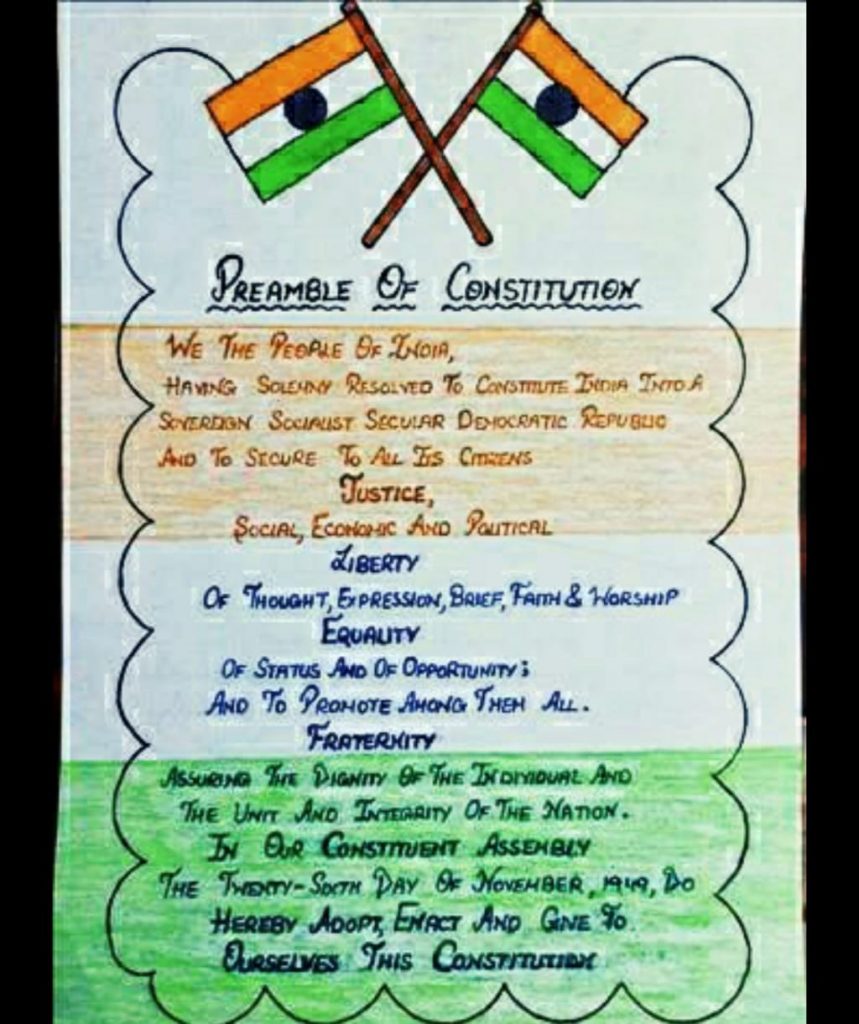 Preamble Of Constitution
We The People Of India,
Having Solemny Resolved To Constitute India Into A
Sovereign Socialist Secular Democratic Republic
And To Secure To All Its Citizens
Justice,
Social, Economic And Political
Liberty
Of Thought, Expression, Brief, Faith & Worship
Equality
Of Status And Of Opportunity;
And To Promote Among Them All.
Fraternity
Assuring The Dignity Of The Individual And
The Unit And Integrity Of The Nation.
In Our Constituent Assembly
The Twenty-Sixth Day Of November, 1949, Do
Hereby Adopt, Enact And Give To
Ourselves This Constitution